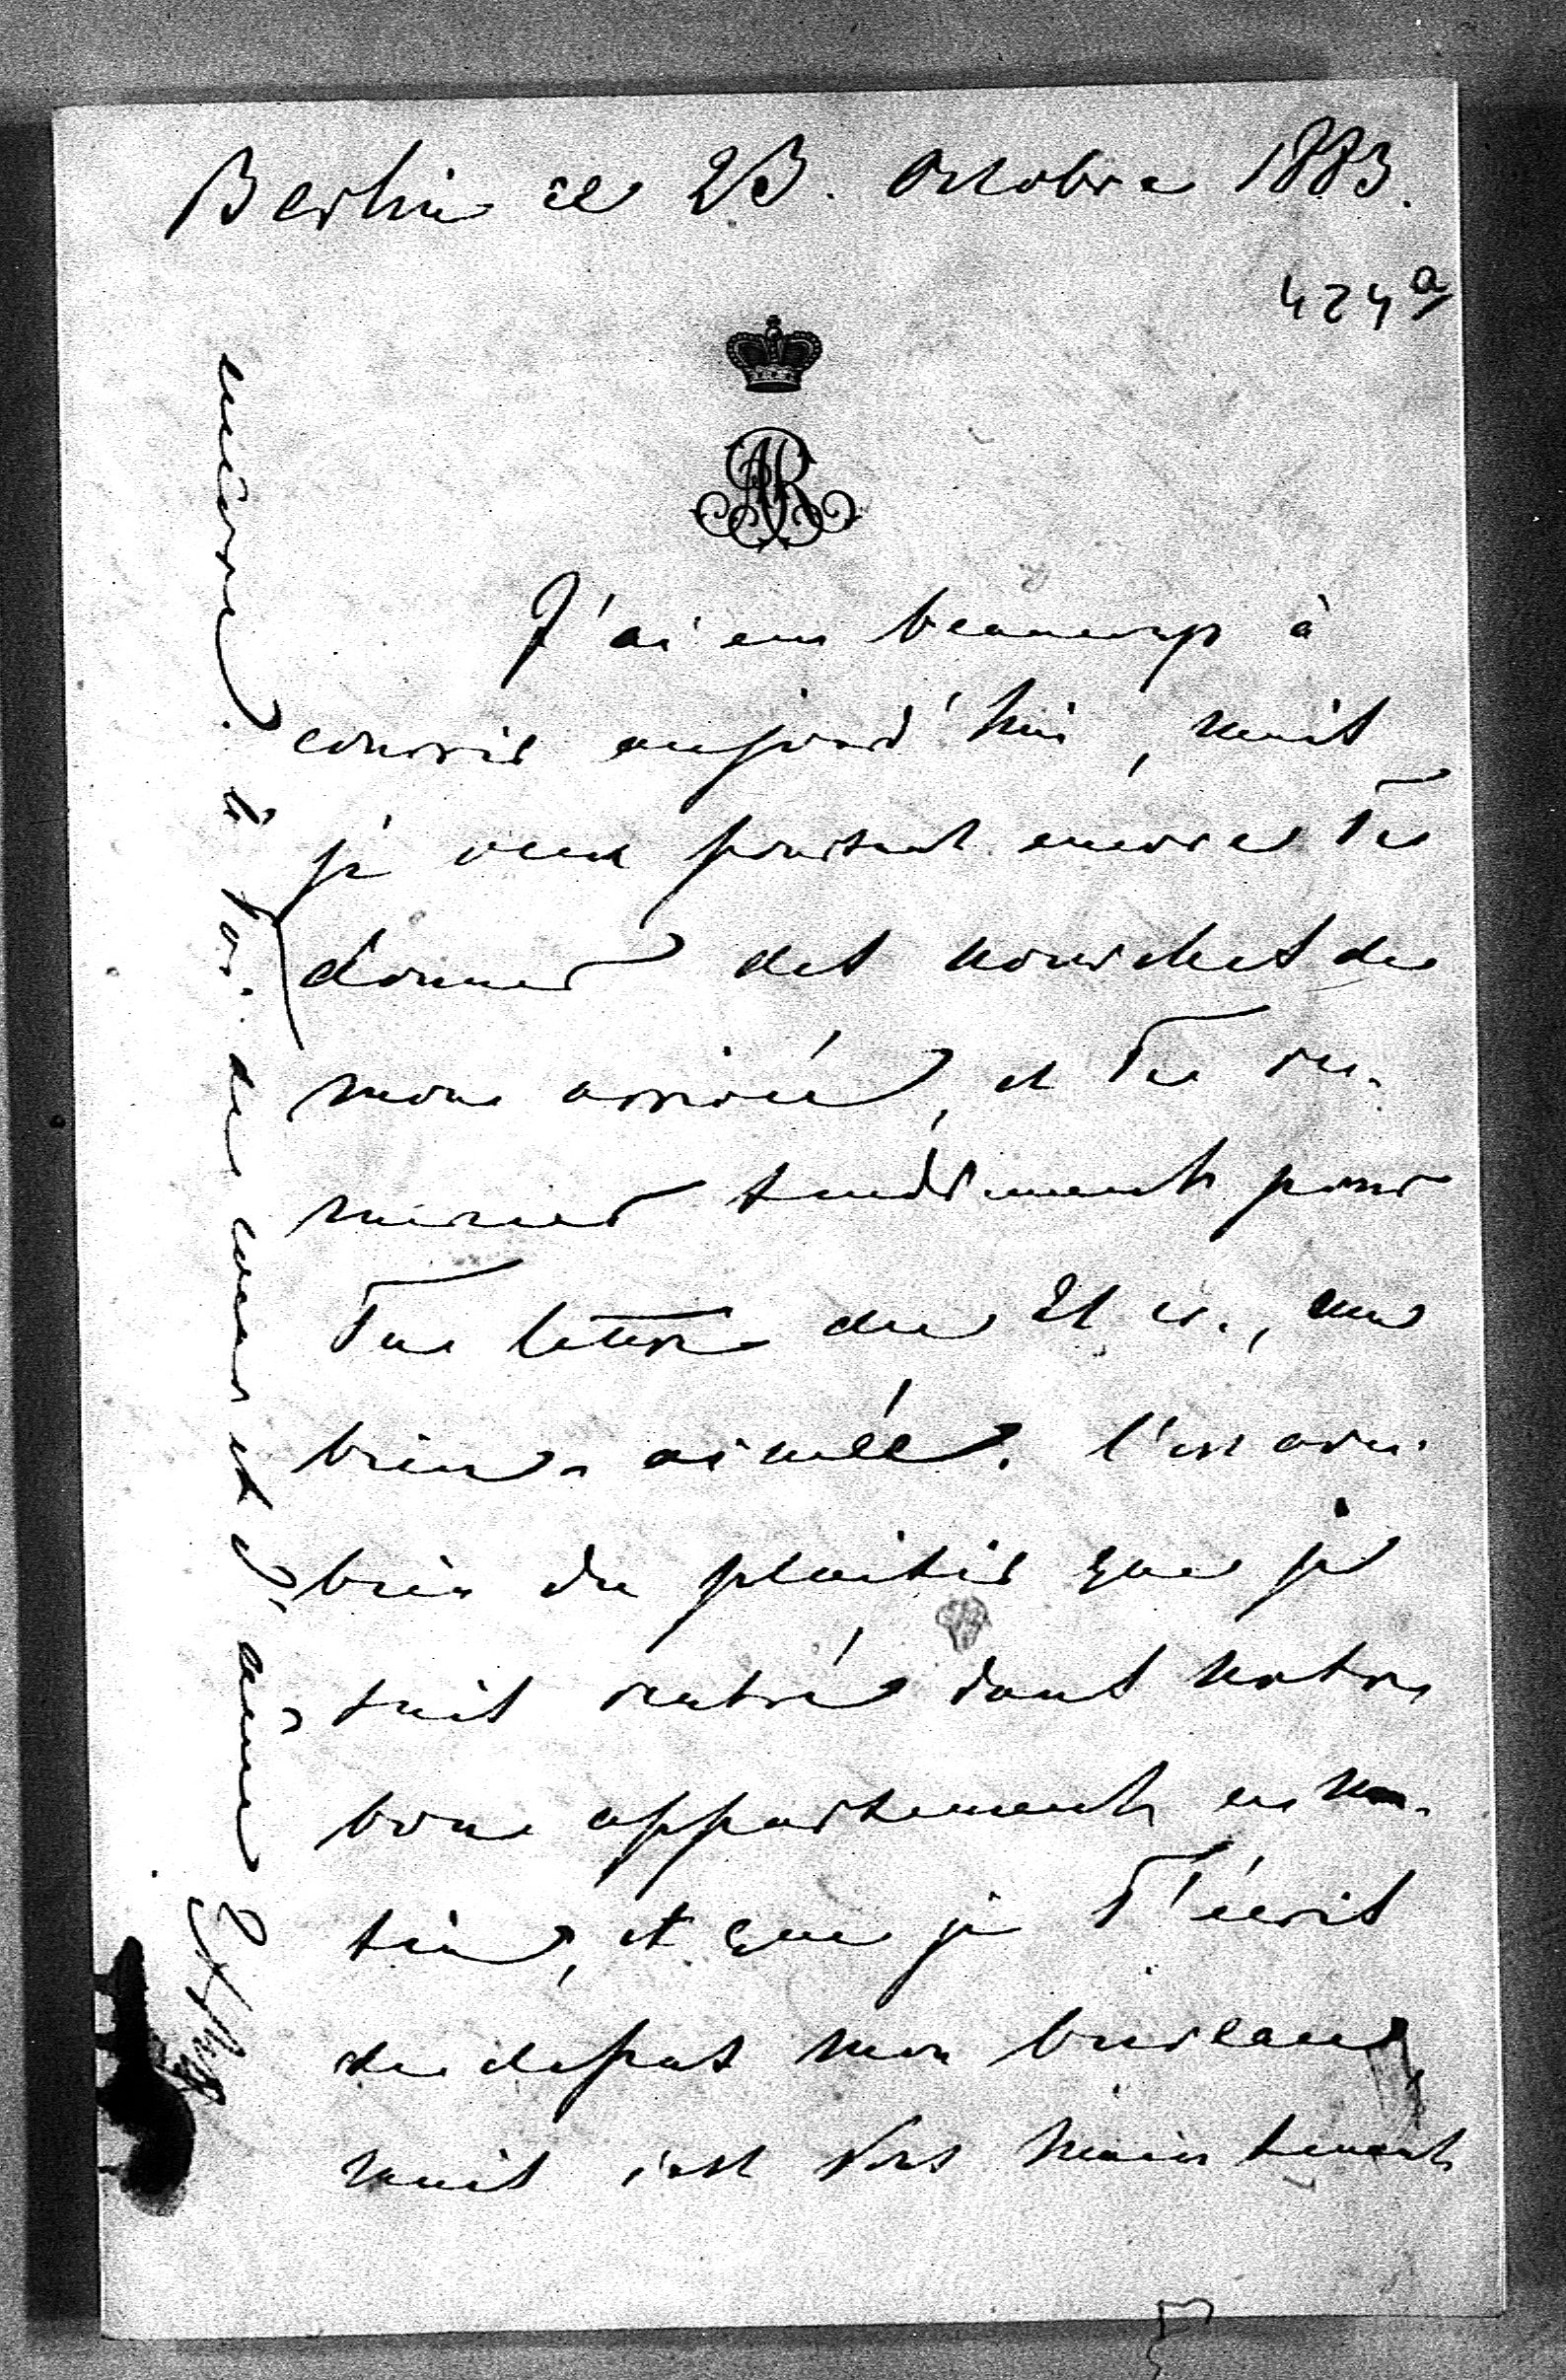 Berlin ce 23. Octobre 1883.
424a
AR
J'ai eu beaucoup à
courrir aujourd'hui, mais
je veux pourtant encore Te
donner des nouvelles de
mon arrivée, et Te re-
mercier tendrement pour
Ta lettre du 21 cr., ma
bien-aimée. C'est avec
bien du plaisir que je
suis rentré dans notre
bon appartement ce ma-
tin, et que je T'écris
de depuis mon bureau,
mais c'est Vers maintenant
encore. à Toi de cœur et d'âme